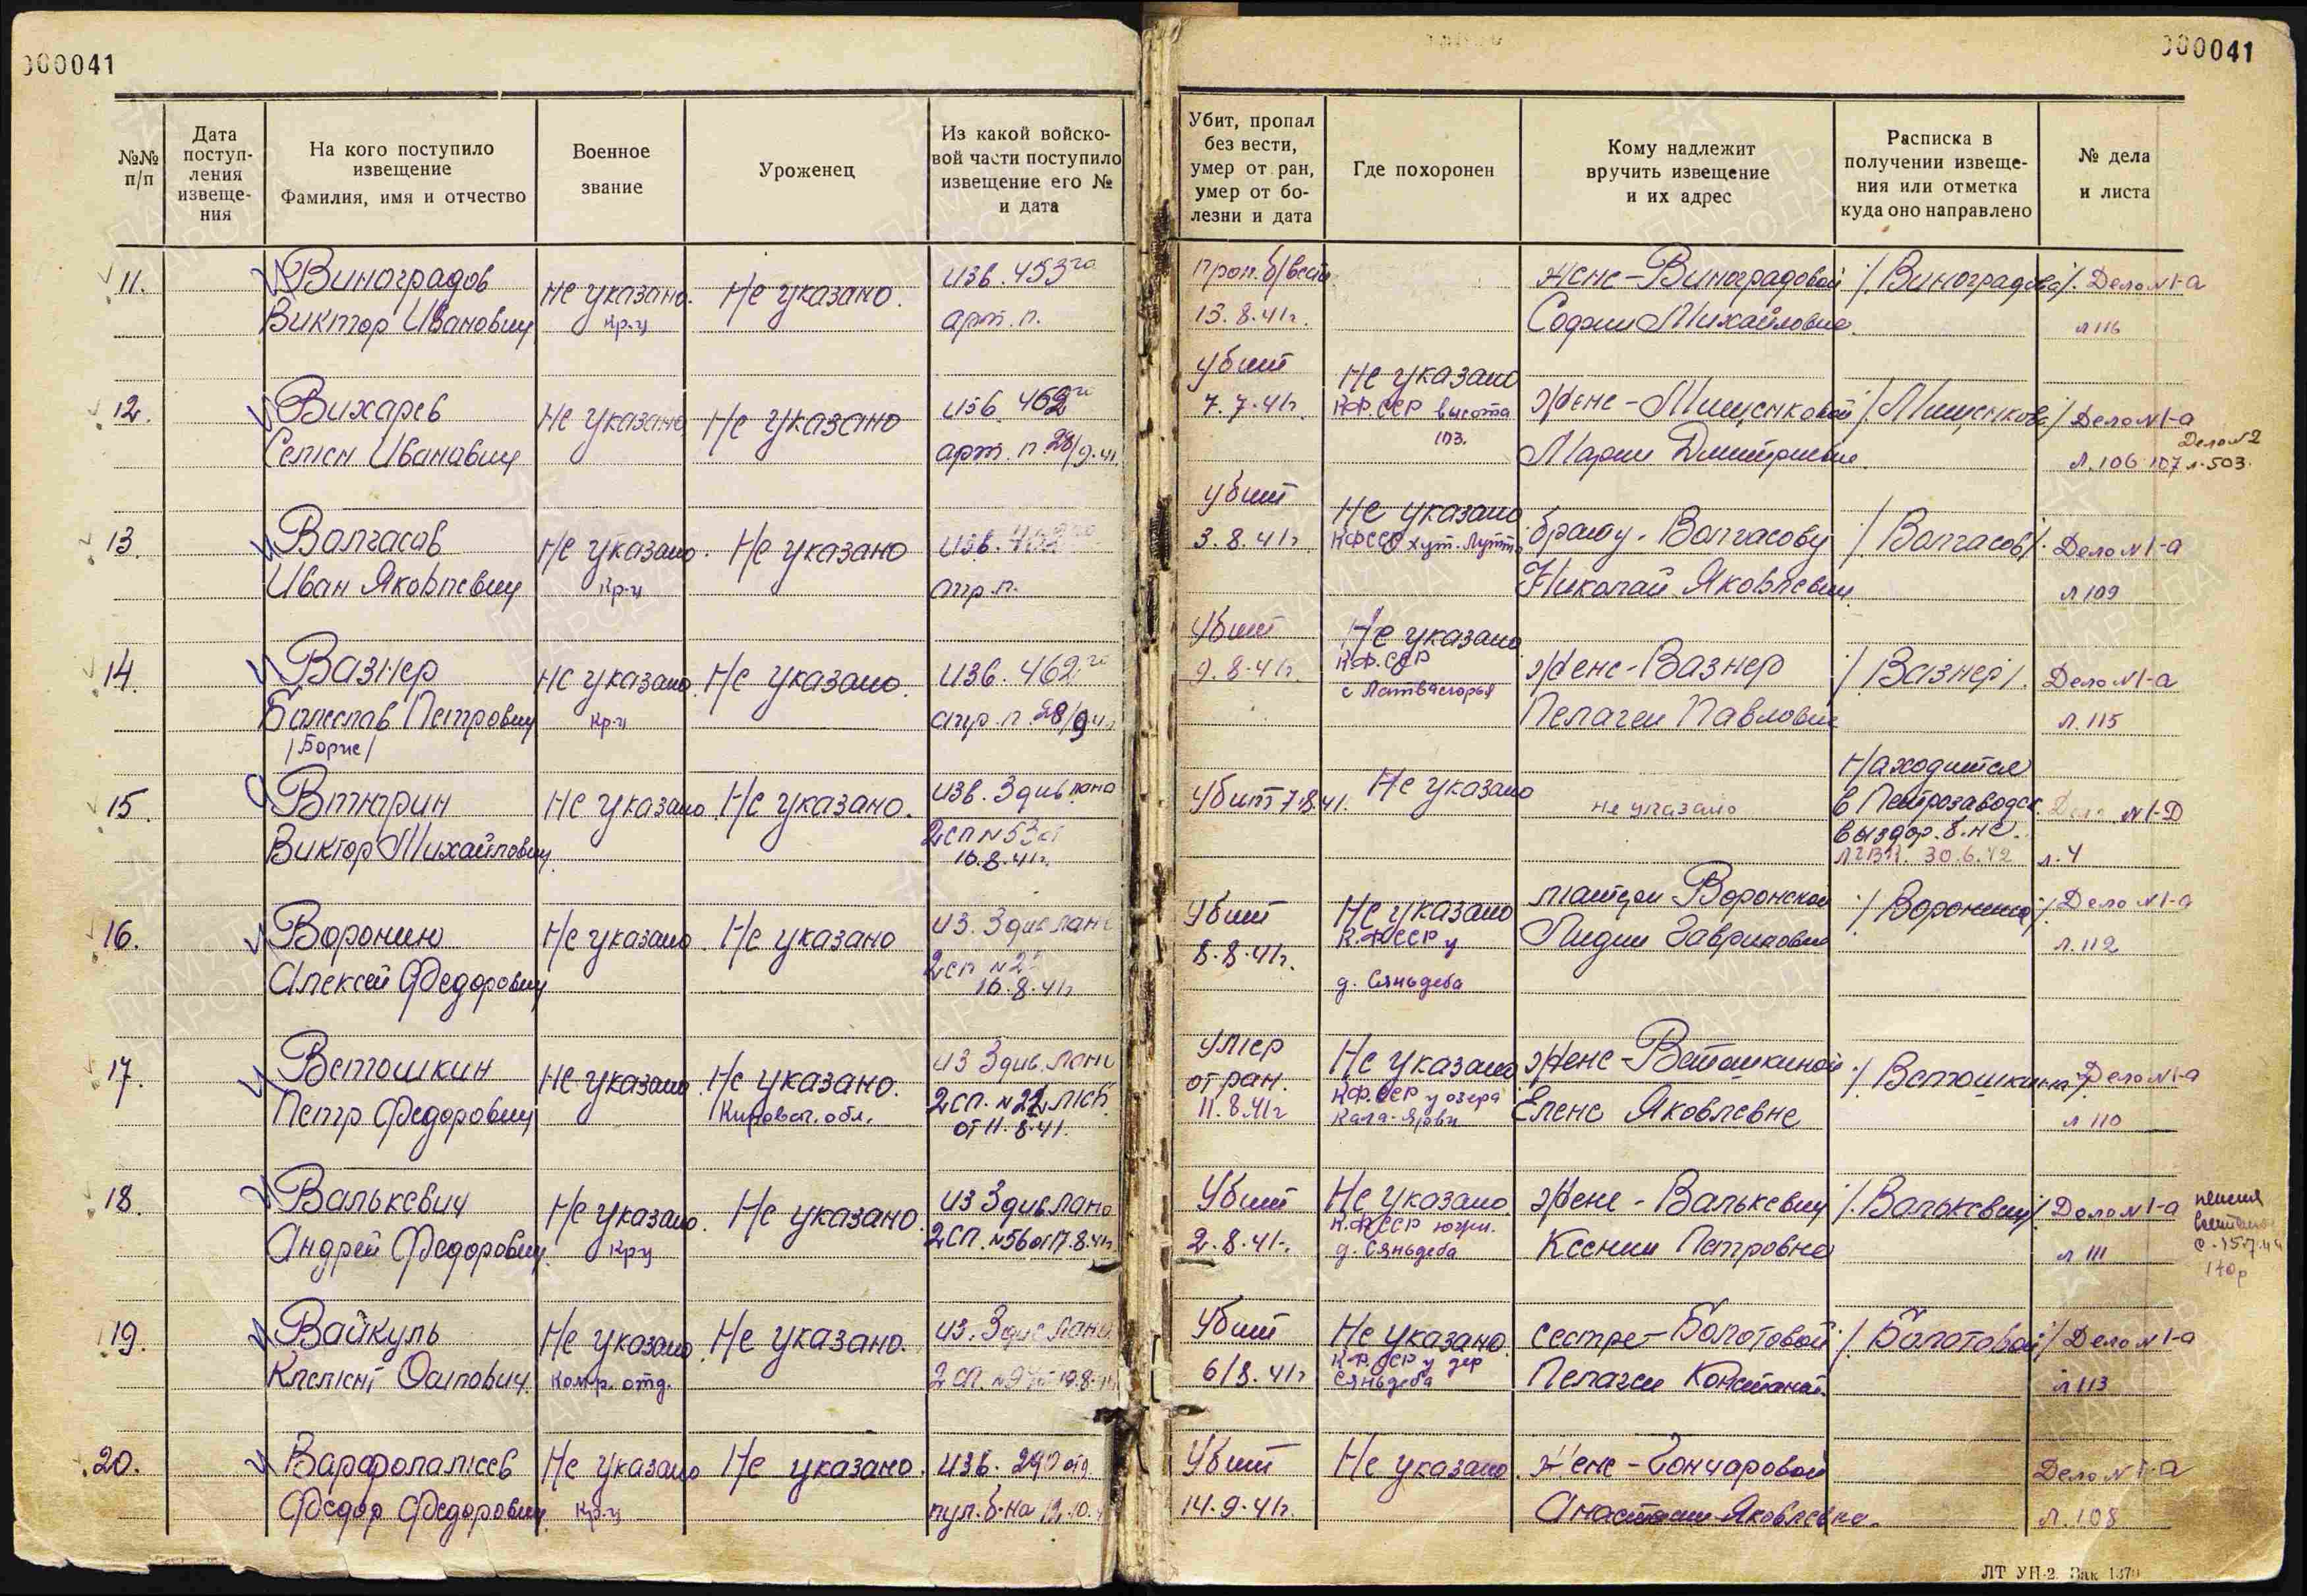 000041
000041
№№ п/п
Дата поступ- ления извеще- ния
На кого поступило извещение Фамилия, имя и отчество
Военное звание
Уроженец
Из какой войско- вой части поступило извещение его № и дата
Убит, пропал без вести, умер от ран, умер от бо- лезни и дата
Где похоронен
Кому надлежит вручить извещение и их адрес
Расписка в получении извеще- ния или отметка куда оно направлено
№ дела и листа
11. Виноградов не указано. Не указано. изв. 453го проп. б/вести жене - Виноградовой /Виноградова/. Дело №1-а
Виктор Иванович кр-ц арт. п. 13.8.41г. Софии Михайловне. л 116
убит Не указано
12. Вихарев Не указано Не указано изв. 462го 7.7.41г. КФ.ССР высота жене - Мищенковой /Мищенкова/ Дело №1-а
103. Дело №2
Семен Иванович арт. п 28/9.41. Марии Дмитриевне. л. 106 107 л. 503.
убит Не указано
13. Волгасов Не указано. Не указано изв. 3.8.41г. КФССР хут. Лутт брату - Волгасову /Волгасов/. Дело №1-а
Иван Яковлевич кр-ц апр. п. Николай Яковлевич. л 109
Убит Не указано
14. Вазнер не указано. Не указано. изв. 462го 9.8.41г. К.Ф.ССР жене - Вазнер /Вазнер/. Дело №1-а
с Латвасюрья
Болеслав Петрович кр-ц апр. п. 28/9 41г Пелагеи Павловне л. 115
/Борис/
Находится
15. Виктор Михайлович. Не указано Не указано. изв. 3 див. лано Убит 7.8.41. Не указано не указано в Петрозаводск. №1-Д
2 СП №53
16.8.41г. выздор. б-не.
30.6.42 л. 4
16. Воронин Не указано. Не указано из. 3 див лано Убит Не указано матери Воронской /Воронина/. Дело №1-а
К.ФССР у Лидии Гавриловне л. 112
Алексей Федорович 2 сп 16.8.41г 8.8.41г. д. Сяньдеба
17. Ветошкин Не указано. Не указано. из 3 див. лано умер Не указано жене - Ветошкиной /Ветошкина/ Дело №1-а
от ран.
Петр Федорович Кировск. обл. 2 СП. №22 от 11.8.41. 11.8.41г КФ.ССР у озера Кала-Ярви Елене Яковлевне л 110
18. Валькевич Не указано. Не указано. из 3 див лано Убит Не указано. жене - Валькевич /Валькевич/ Дело №1-а
Андрей Федорович. кр-ц 2 СП. №56 от 17.8.41г. 2.8.41г. К.ФССР южн. д. Сяньдеба Ксении Петровне л 111
19. Вайкуль Не указано. Не указано. из. 3 див лано Убит Не указано. сестре - Болотовой /Болотовой/ Дело №1-а
Клемент Осипович. Ком-р. отд. 2 СП. 6/8.41г К.Ф.ССР у дер Сяньдеба Пелагеи Констант. л 113
20. Варфоламеев Не указано Не указано. изв. 290 отд Убит Не указано. Жене - Гончаровой Дело №1-а
Федор Федорович. кр-ц пул. б-на 12.10. 14.9.41г. Анастасии Яковлевне. л. 108
ЛТ УН-2. Зак 1370